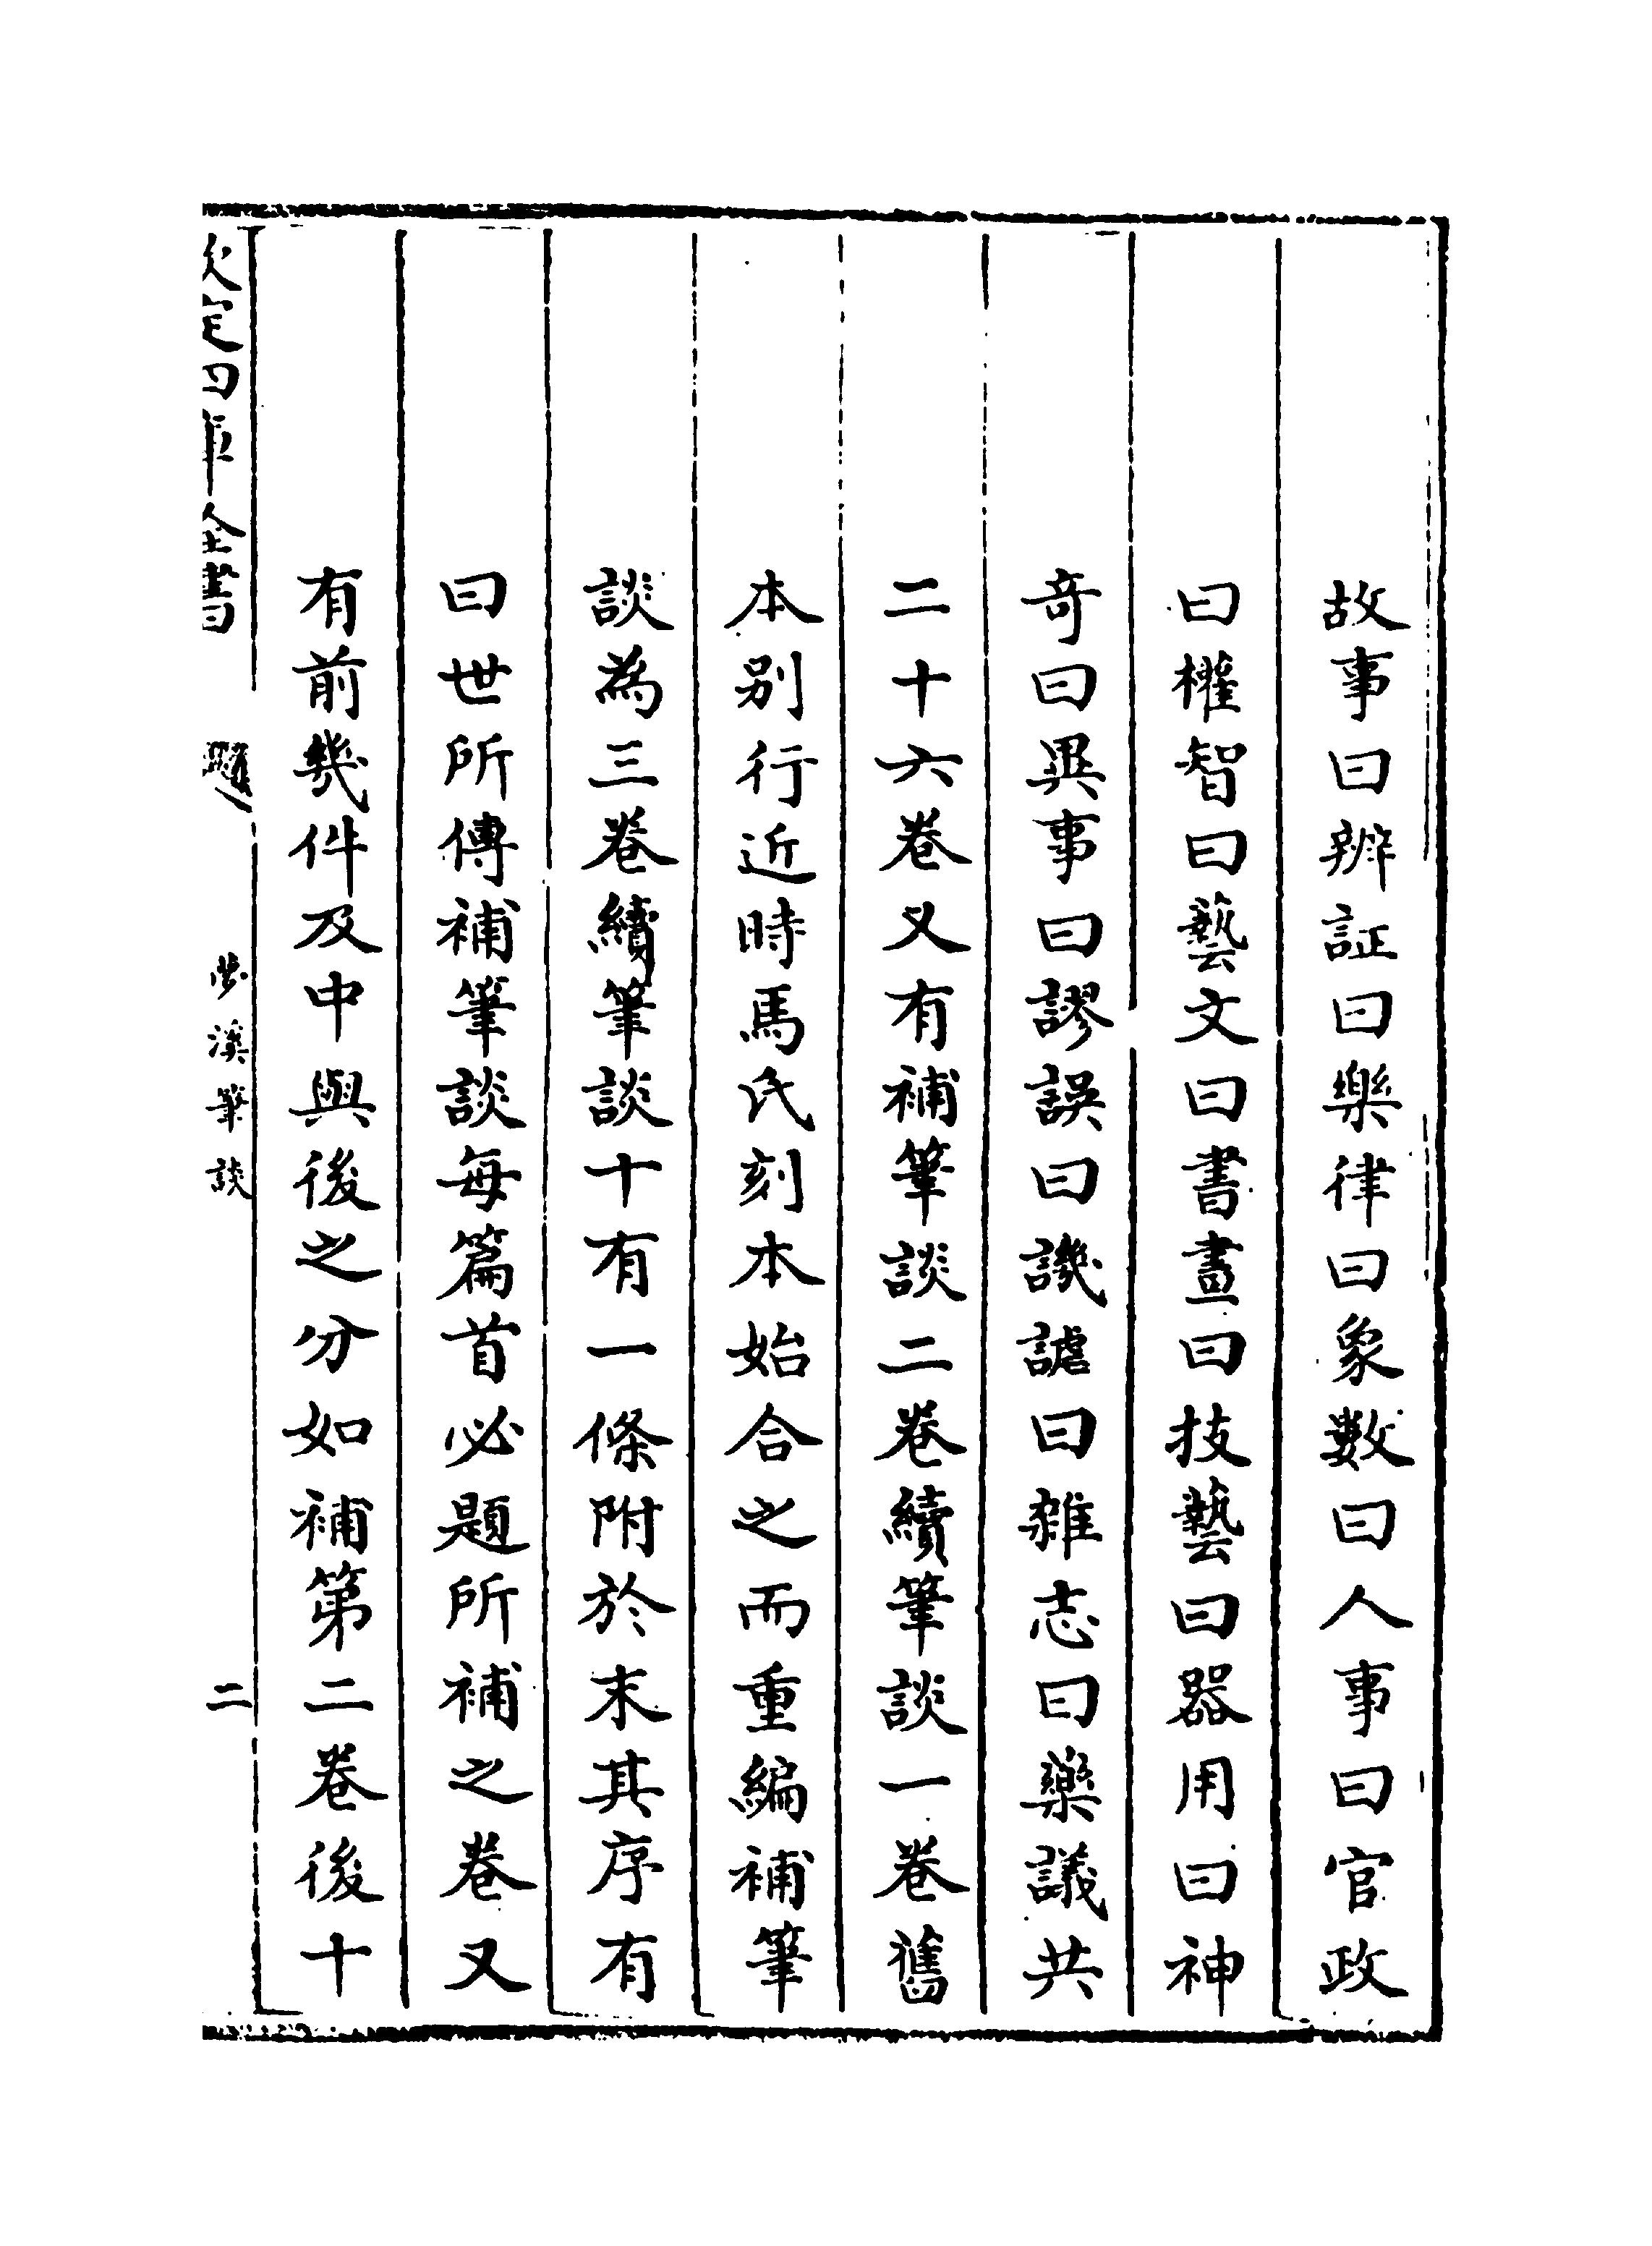 故事曰辨証曰樂律曰象數曰人事曰官政
曰權智曰藝文曰書畫曰技藝曰器用曰神
奇曰異事曰謬誤曰譏謔曰雜志曰藥議共
二十六卷又有補筆談二卷續筆談一卷舊
本別行近時馬氏刻本始合之而重編補筆
談為三卷續筆談十有一條附於末其序有
曰世所傳補筆談每篇首必題所補之卷又
有前幾件及中與後之分如補第二卷後十
欽定四庫全書
夢溪筆談
二